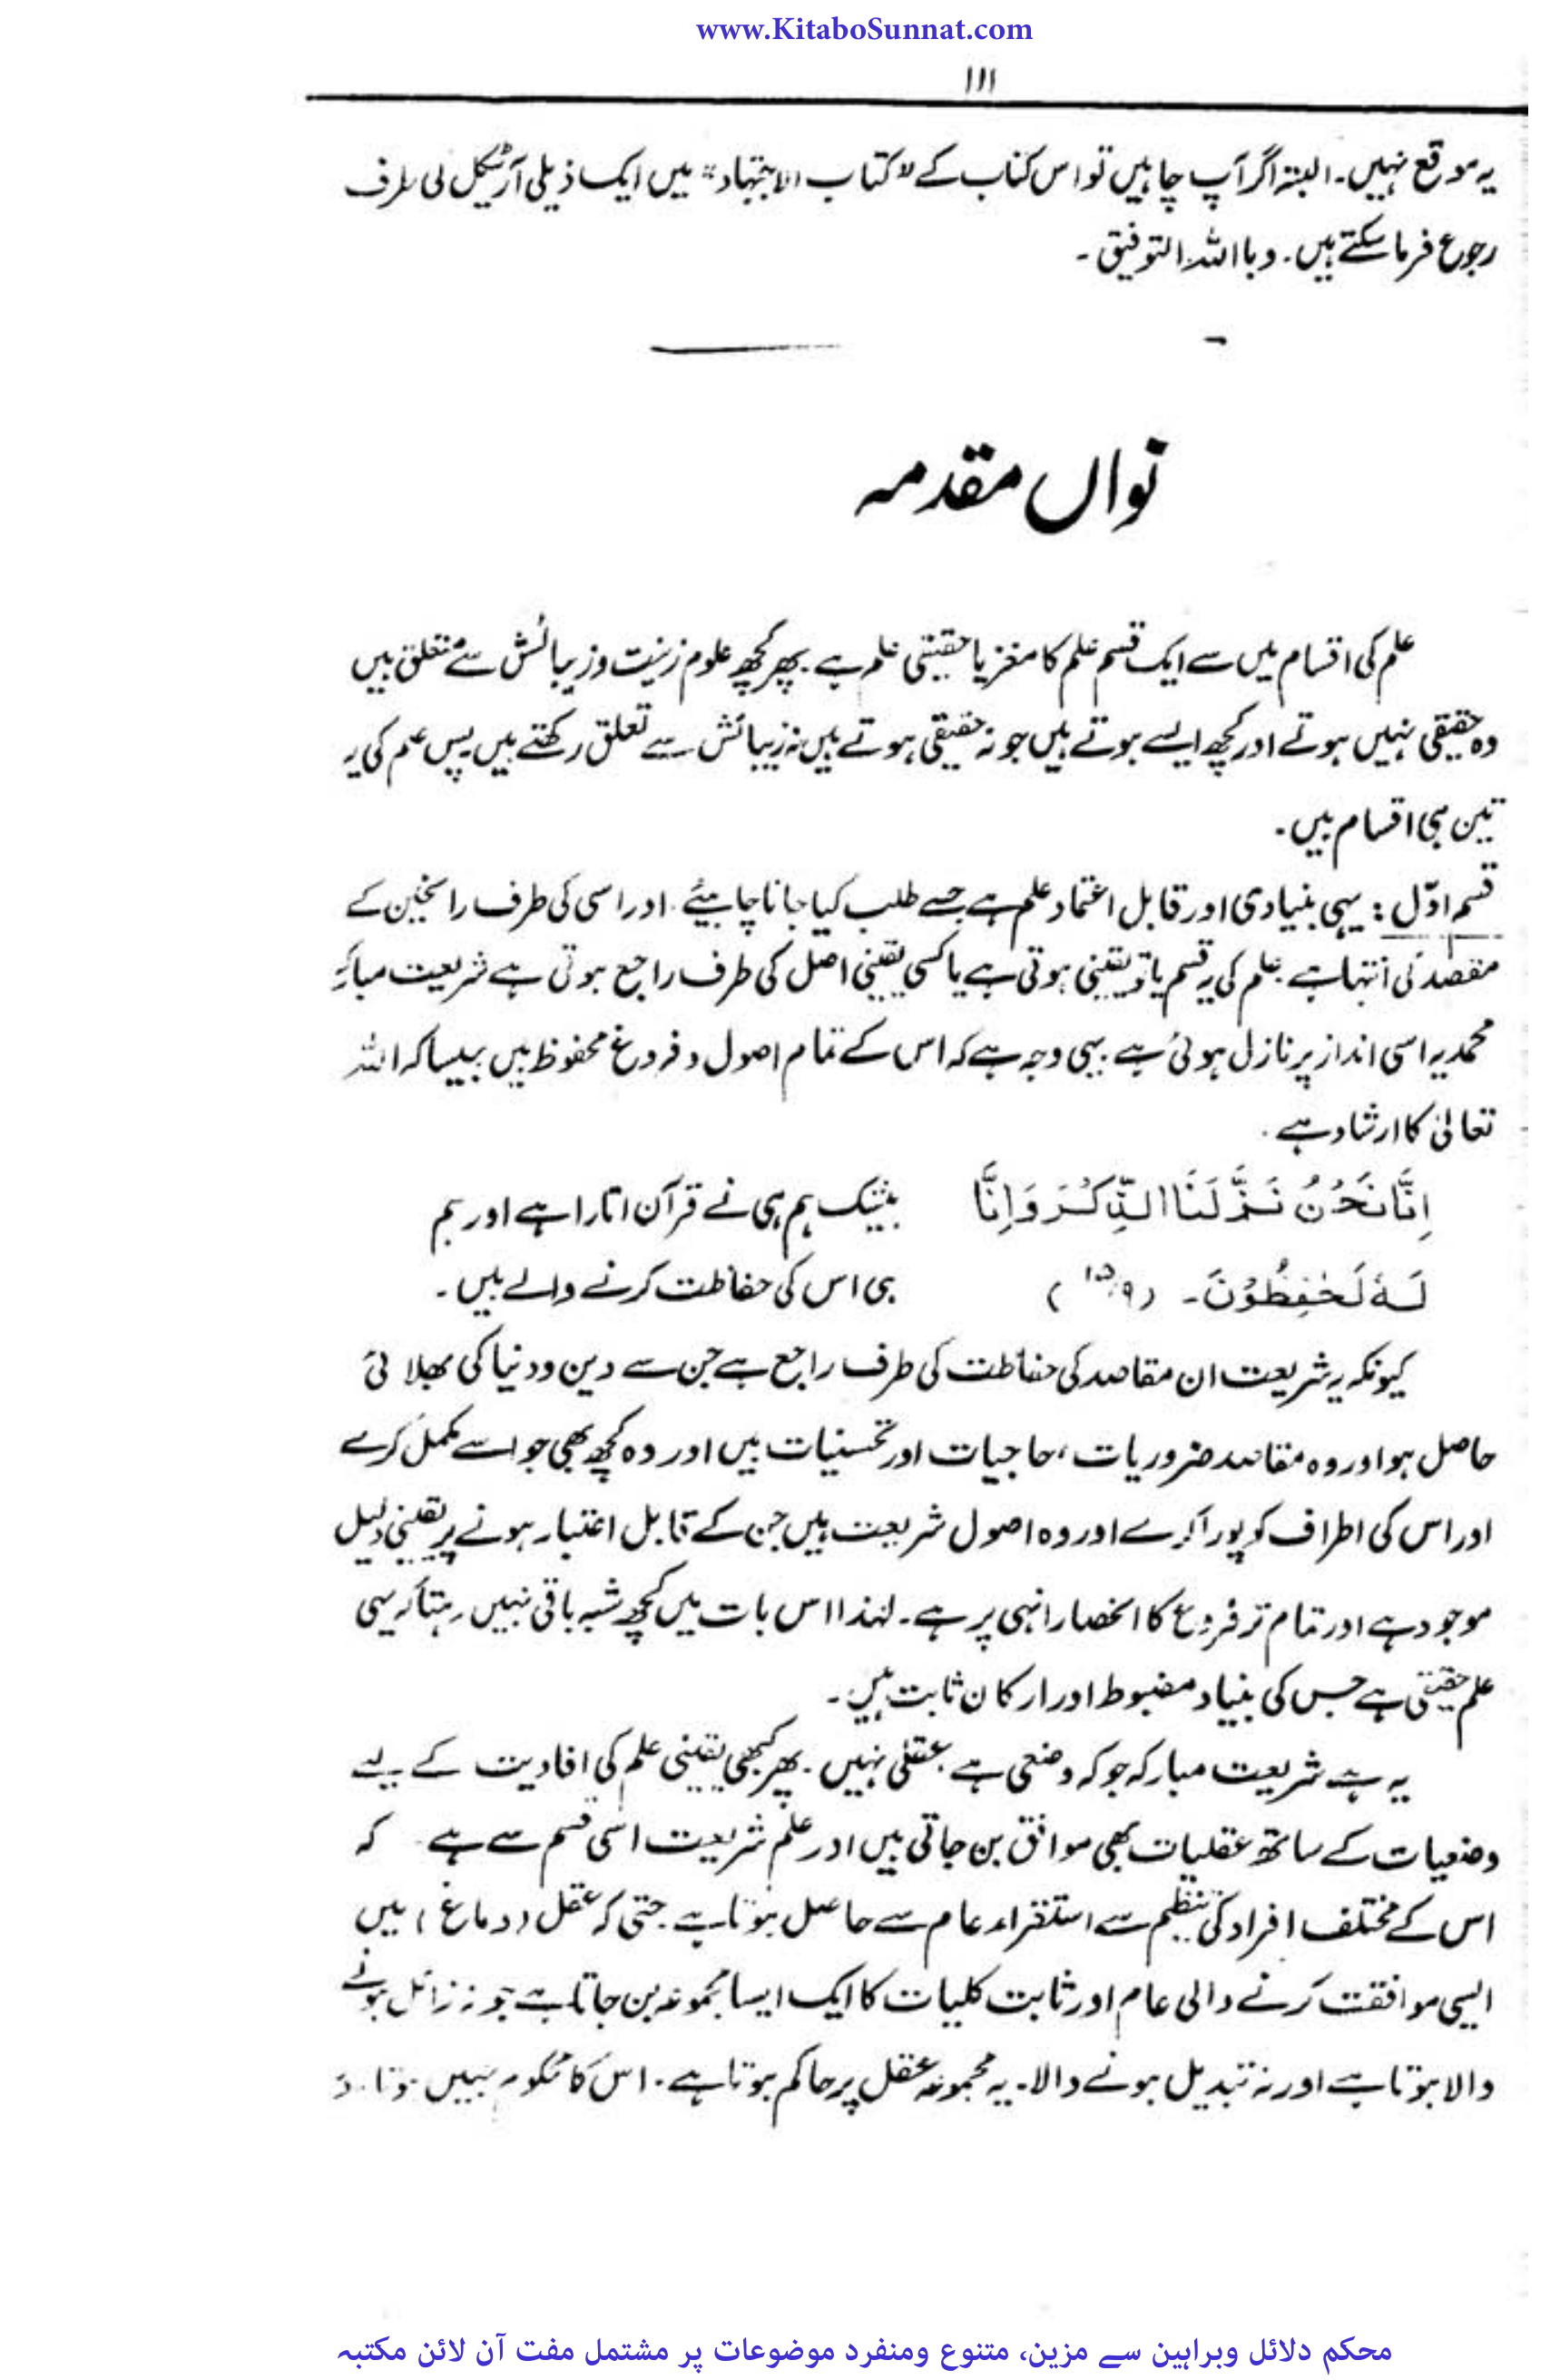 www.KitaboSunnat.com
۱۱۱
یہ موقع نہیں۔ البتہ اگر آپ چاہیں تو اس کتاب کے "کتاب الاجتہاد" میں ایک ذیلی آرٹیکل کی طرف
رجوع فرما سکتے ہیں۔ وبا اللہ التوفیق۔
نواں مقدمہ
علم کی اقسام میں سے ایک قسم علم کا مغز یا حقیقی علم ہے۔ پھر کچھ علوم زینت و زیبائش سے متعلق ہیں
وہ حقیقی نہیں ہوتے اور کچھ ایسے ہوتے ہیں جو نہ حقیقی ہوتے ہیں نہ زیبائش سے تعلق رکھتے ہیں پس علم کی یہ
تین ہی اقسام ہیں۔
قسم اوّل : یہی بنیادی اور قابل اعتماد علم ہے جسے طلب کیا جانا چاہیئے۔ اور اسی کی طرف راسخین کے
مقصد کی انتہا ہے۔ علم کی یہ قسم یا تو یقینی ہوتی ہے یا کسی یقینی اصل کی طرف راجع ہوتی ہے شریعت مبارکہ
محمدیہ اسی انداز پر نازل ہوئی ہے۔ یہی وجہ ہے کہ اس کے تمام اصول و فروع محفوظ ہیں جیسا کہ اللہ
تعالیٰ کا ارشاد ہے۔
اِنَّا نَحْنُ نَزَّلْنَا الذِّكْرَ وَاِنَّا بیشک ہم ہی نے قرآن اتارا ہے اور ہم
لَهٗ لَحٰفِظُوْنَ۔ (۱۵/۹) ہی اس کی حفاظت کرنے والے ہیں۔
کیونکہ یہ شریعت ان مقاصد کی حفاظت کی طرف راجع ہے جن سے دین و دنیا کی بھلائی
حاصل ہو اور وہ مقاصد ضروریات، حاجیات اور تحسنیات ہیں اور وہ کچھ بھی جو اسے مکمل کرے
اور اس کی اطراف کو پورا کرے اور وہ اصول شریعت ہیں جن کے قابل اعتبار ہونے پر یقینی دلیل
موجود ہے اور تمام تر فروع کا انحصار انہی پر ہے۔ لہٰذا اس بات میں کچھ شبہ باقی نہیں رہتا کہ یہی
علم حقیقی ہے جس کی بنیاد مضبوط اور ارکان ثابت ہیں۔
یہ ہے شریعت مبارکہ جو کہ وضعی ہے عقلی نہیں۔ پھر کبھی یقینی علم کی افادیت کے لیے
وضعیات کے ساتھ عقلیات بھی موافق بن جاتی ہیں اور علم شریعت اسی قسم سے ہے کہ
اس کے مختلف افراد کی تنظیم سے استقراء عام سے حاصل ہوتا ہے۔ حتی کہ عقل (دماغ) میں
ایسی موافقت کرنے والی عام اور ثابت کلیات کا ایک ایسا مجموعہ بن جاتا ہے جو نہ زائل ہونے
والا ہوتا ہے اور نہ تبدیل ہونے والا۔ یہ مجموعہ عقل پر حاکم ہوتا ہے۔ اس کا محکوم نہیں ہوتا۔
محکم دلائل وبراہین سے مزین، متنوع ومنفرد موضوعات پر مشتمل مفت آن لائن مکتبہ